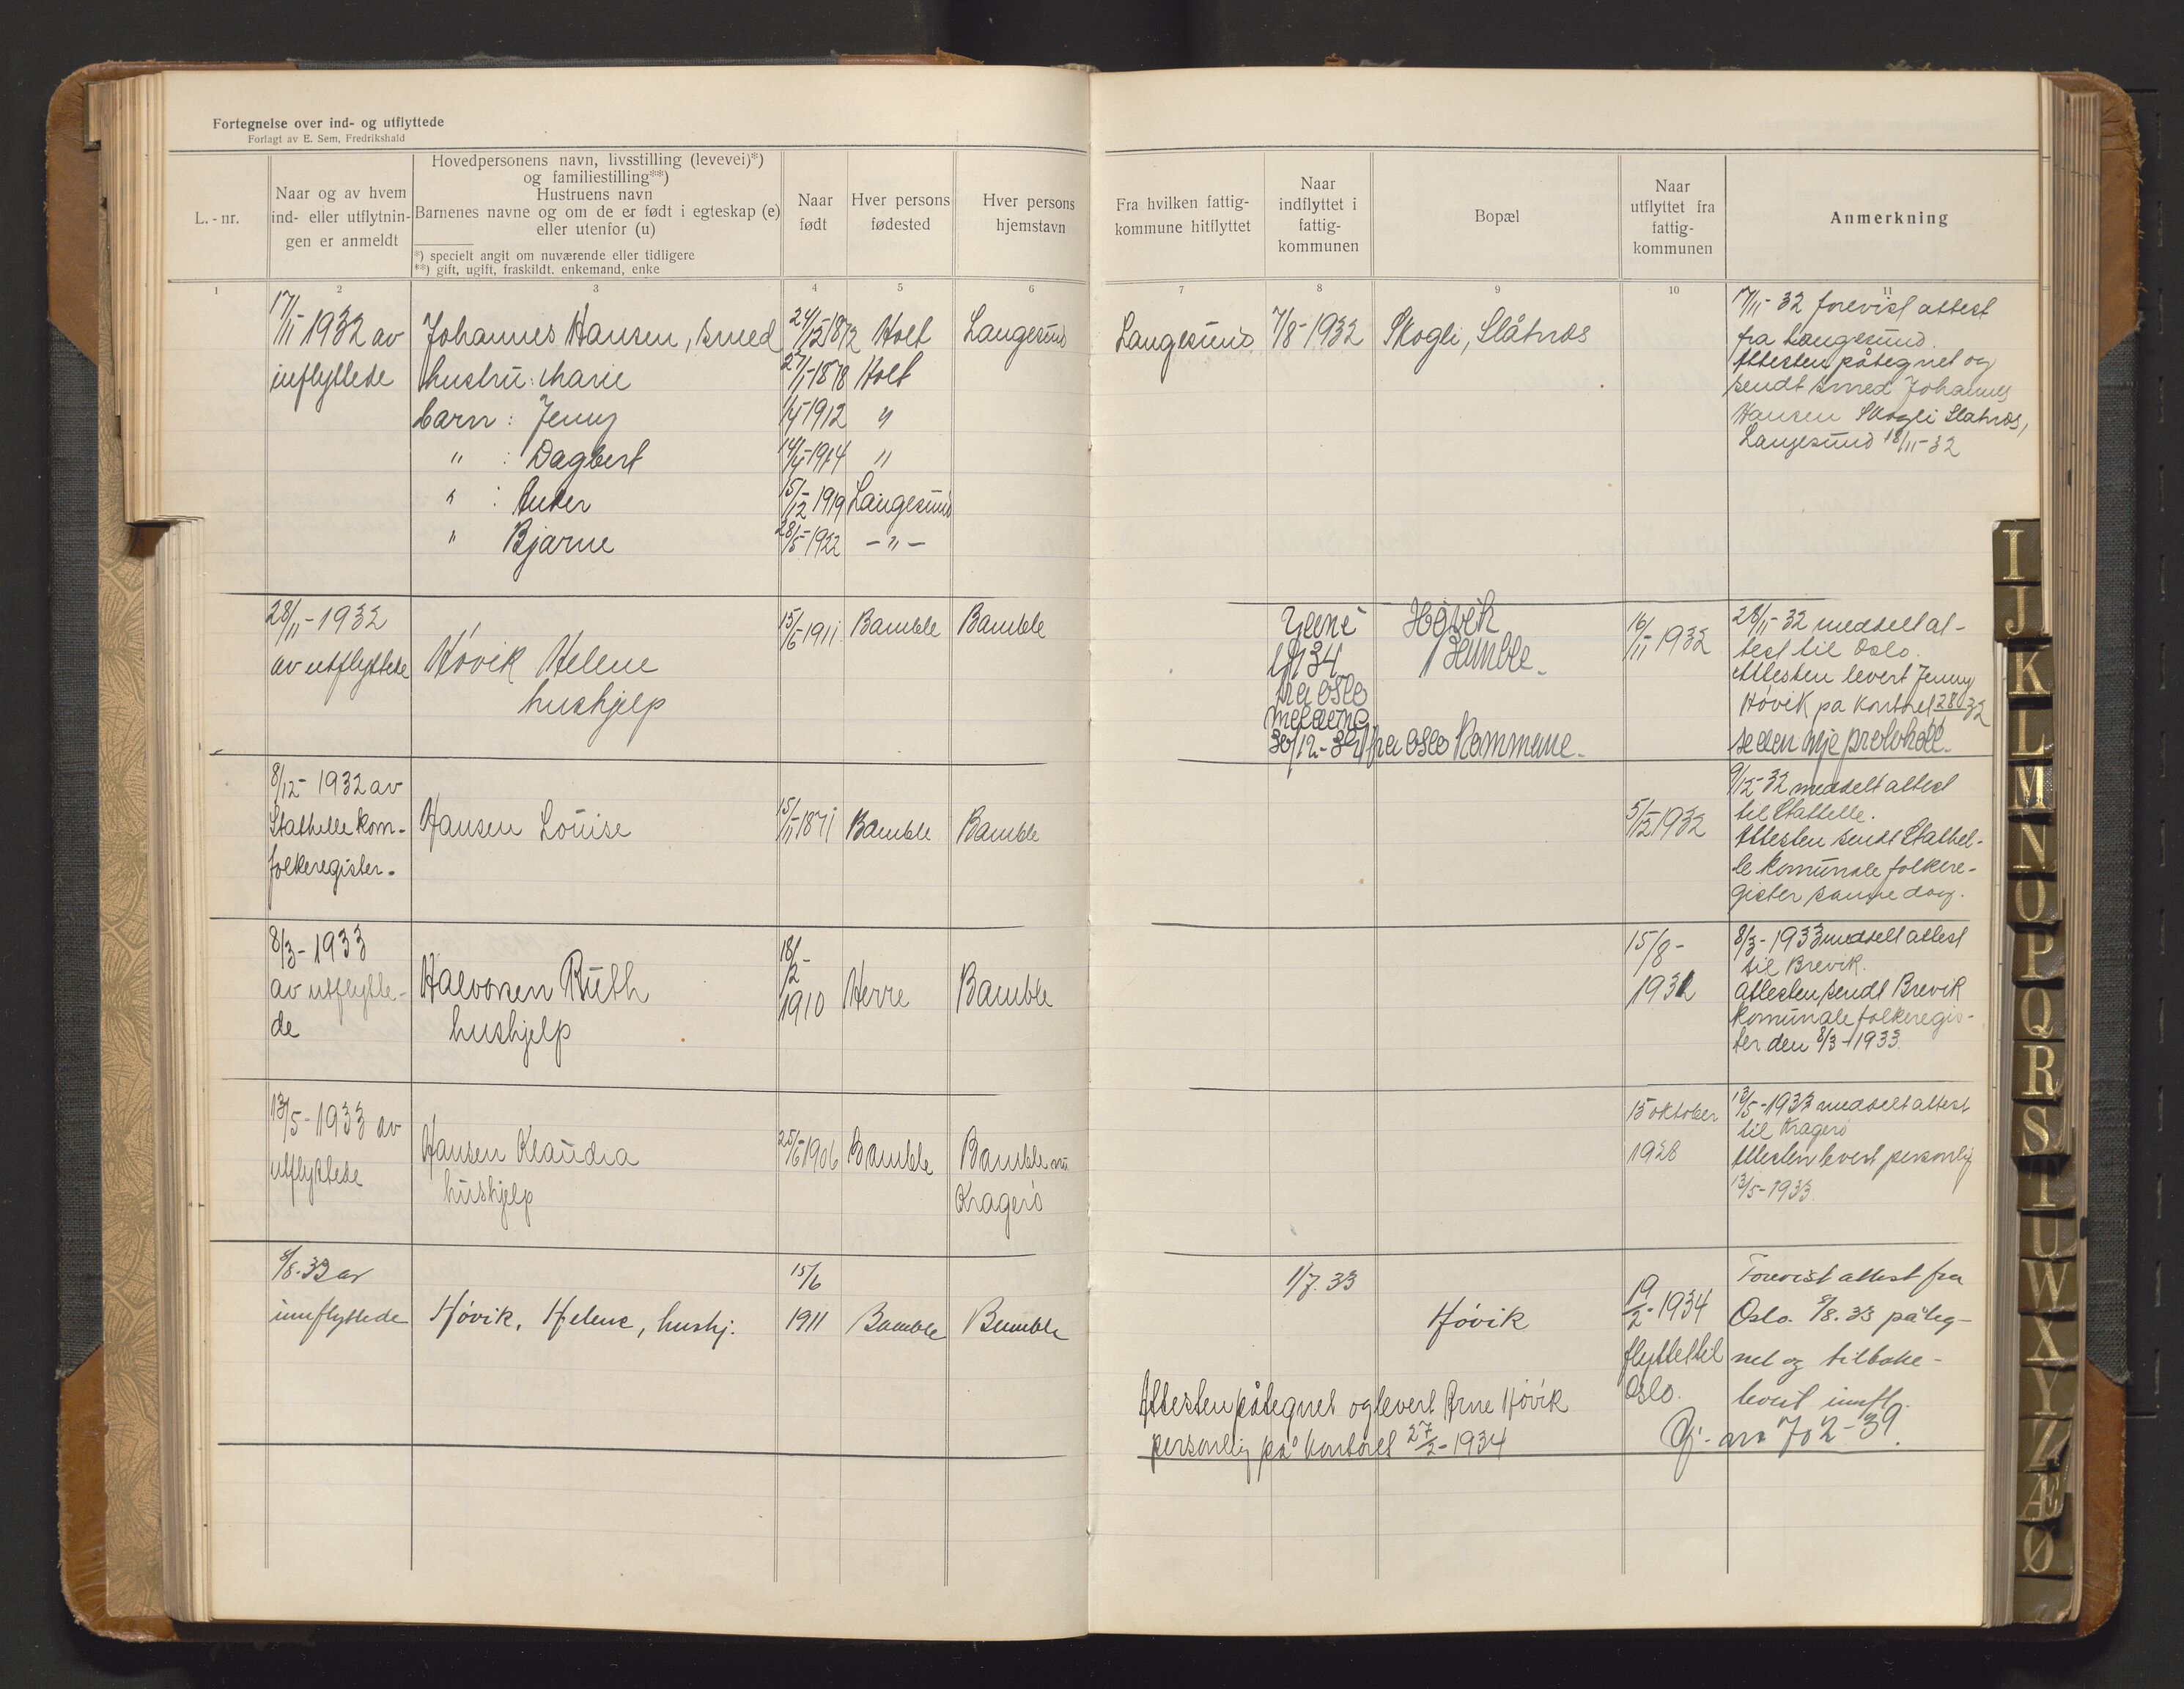 Fortegnelse over ind- og utflyttede
Forlagt av E. Sem, Fredrikshald
L. - nr.
Naar og av hvem
ind- eller utflytnin-
gen er anmeldt
Hovedpersonens navn, livsstilling (levevei)*)
og familiestilling**)
Hustruens navn
Barnenes navne og om de er født i egteskap (e)
eller utenfor (u)
*) specielt angit om nuværende eller tidligere
**) gift, ugift, fraskildt. enkemand, enke
Naar
født
Hver persons
fødested
Hver persons
hjemstavn
Fra hvilken fattig-
kommune hitflyttet
Naar
indflyttet i
fattig-
kommunen
Bopæl
Naar
utflyttet fra
fattig-
kommunen
Anmerkning
1 2 3 4 5 6 7 8 9 10 11
17/11-1932 av
inflyttede
Johannes Hansen, smed 24/12-1872 Holt Langesund
hustru: Marie 27/1-1878 Holt
barn: Jenny 1912 "
" : Dagbert 1914 "
" : 15/12 1919 Langesund
" Bjarne 28/5-1922 - " -
Langesund 7/8-1932 Skogli, Slåtnes
17/11-32 forevist attest
fra Langesund.
Attesten påtegnet og
sendt smed Johannes
Hansen Skogli Slåtnes,
Langesund 18/11-32
28/11-1932
av utflyttede
Høvik Helene
hushjelp
15/6-1911 Bamble Bamble
34
fra Oslo
30/12-34 fra Oslo Kommune.
Høvik
Bamble.
16/11-1932
28/11-32 meddelt at-
test til Oslo.
Attesten levert Jenny
Høvik på kontoret 28/11 32
se den nye protokoll.
8/12- 1932 av
Stathelle kom-
folkeregister.
Hansen Louise
15/11-1871 Bamble Bamble
5/12-1932
9/12-32 meddelt attest
til Stathelle.
Attesten sendt Stathel-
le komunale folkere-
gister samme dag.
8/3-1933
av utflytte-
de
Halvorsen Ruth
hushjelp
18/-
12
1910 Herre Bamble
15/8-
1931
8/3-1933 meddelt attest
til Brevik.
attesten sendt Brevik
komunale folkeregis-
ter den 8/3-1933.
13/5-1933 av
utflyttede
Hansen Klaudia
hushjelp
25/6-1906 Bamble Bamble nu
Kragerø
15 oktober
1928
13/5-1933 meddelt attest
til Kragerø
Attesten levert personlig
13/5-1933.
8/8.33 av
innflyttede
Høvik, Helene, hushj.
15/6
1911 Bamble Bamble
1/7.33
Høvik
19/2-1934
flyttet til
Oslo.
Forevist attest fra
Oslo. 8/8.33 påteg-
net og tilbake-
levert innfl.
702-39.
Attesten påtegnet og levert Arne Høvik
personlig på kontoret 27/2-1934
I
J
K
L
M
N
O
P
Q
R
S
T
U
W
X
Y
Z
Æ
Ø